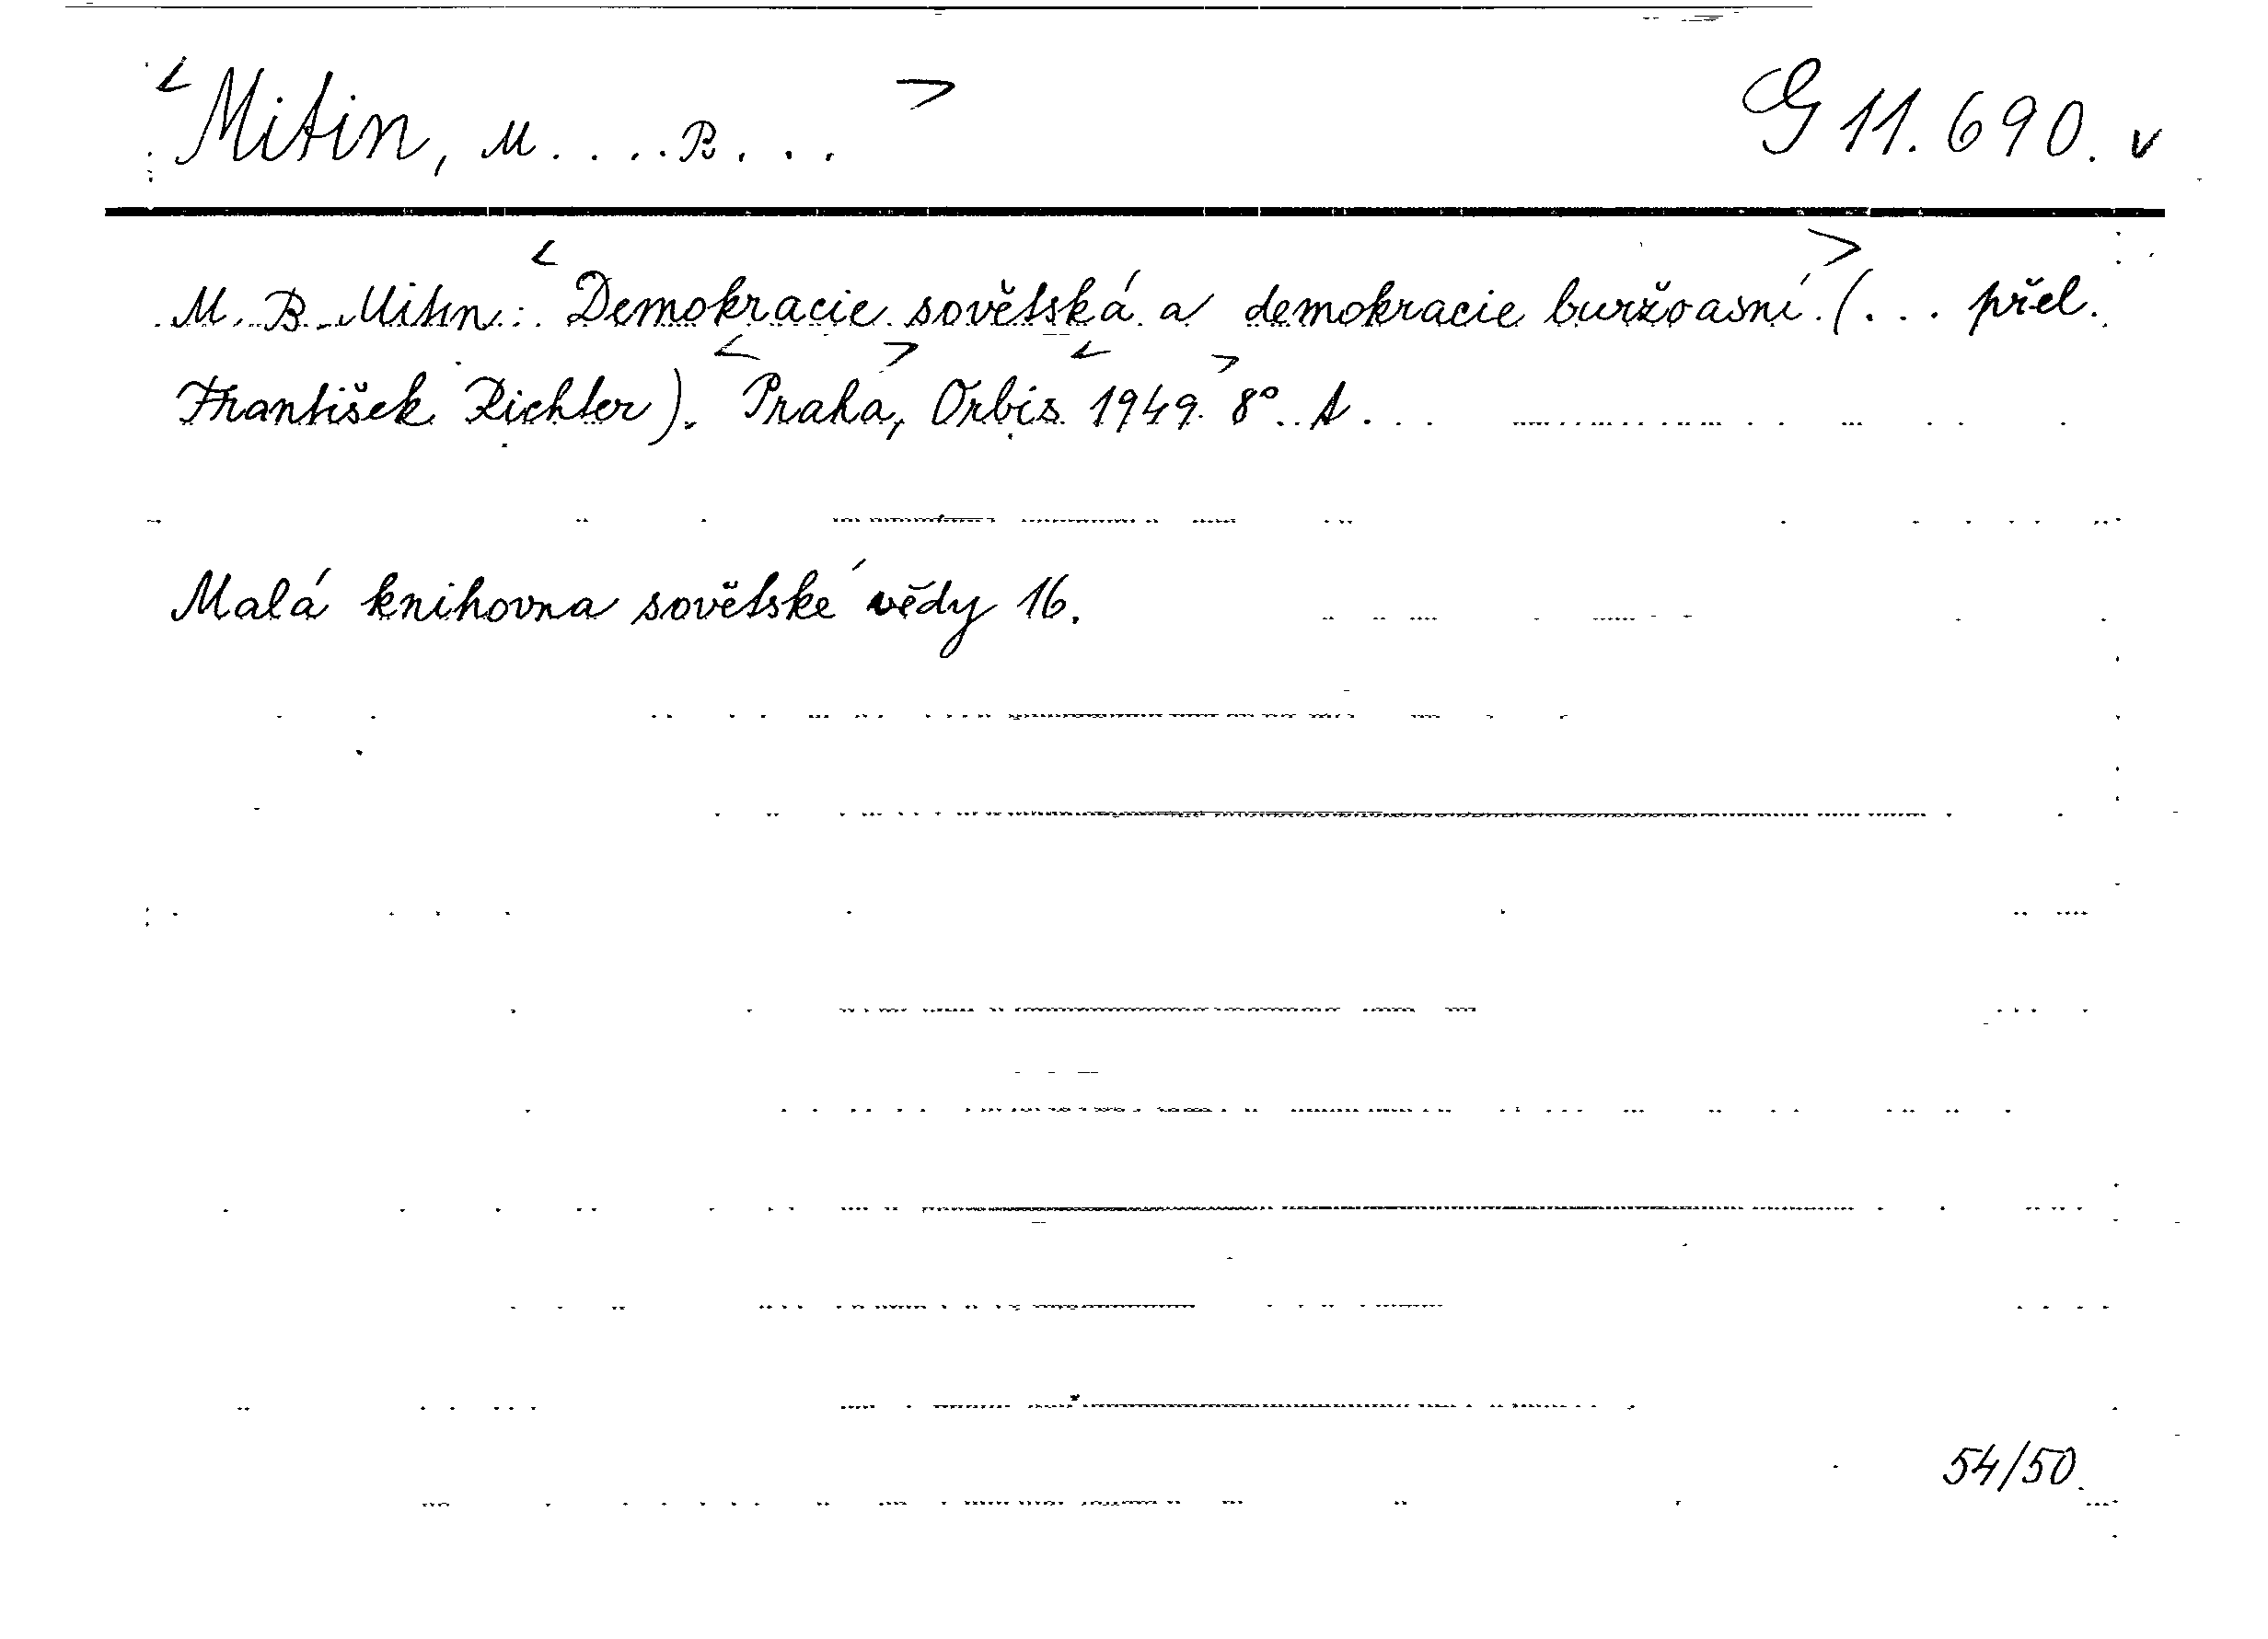 <Mitin, M....B...> G 11.690. v
M. B. Mitin: <Demokracie sovětská a demokracie buržoasní.> (... přel.
František Richter). <Praha>, Orbis <1949.> 8°. A...
Malá knihovna sovětské vědy 16.
54/50.